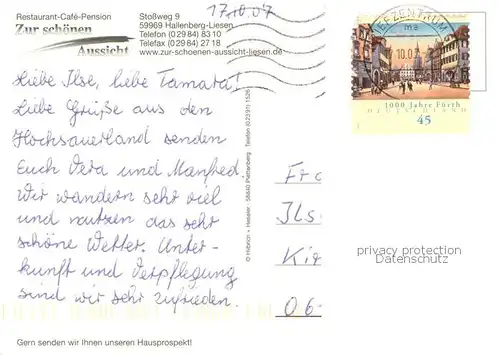 Restaurant-Café-Pension
Zur schönen
Aussicht
Stoßweg 9
59969 Hallenberg-Liesen
Telefon (0 29 84) 83 10
Telefax (0 29 84) 27 18
www.zur-schoenen-aussicht-liesen.de
17.10.07
BRIEFZENTRUM
10.0
1000 Jahre Fürth
DEUTSCHLAND
45
Liebe Ilse, liebe Tamara!
Liebe Grüße aus dem
Hochsauerland senden
Euch Vera und Manfred.
Wir wandern sehr viel
und nutzen das sehr
schöne Wetter. Unter-
kunft und Verpflegung
sind wir sehr zufrieden.
Fra
Ils
Kir
06
© Hitzmann · Plettenberg Telefon (0 23 91) 15 26
privacy protection
Datenschutz
Gern senden wir Ihnen unseren Hausprospekt!